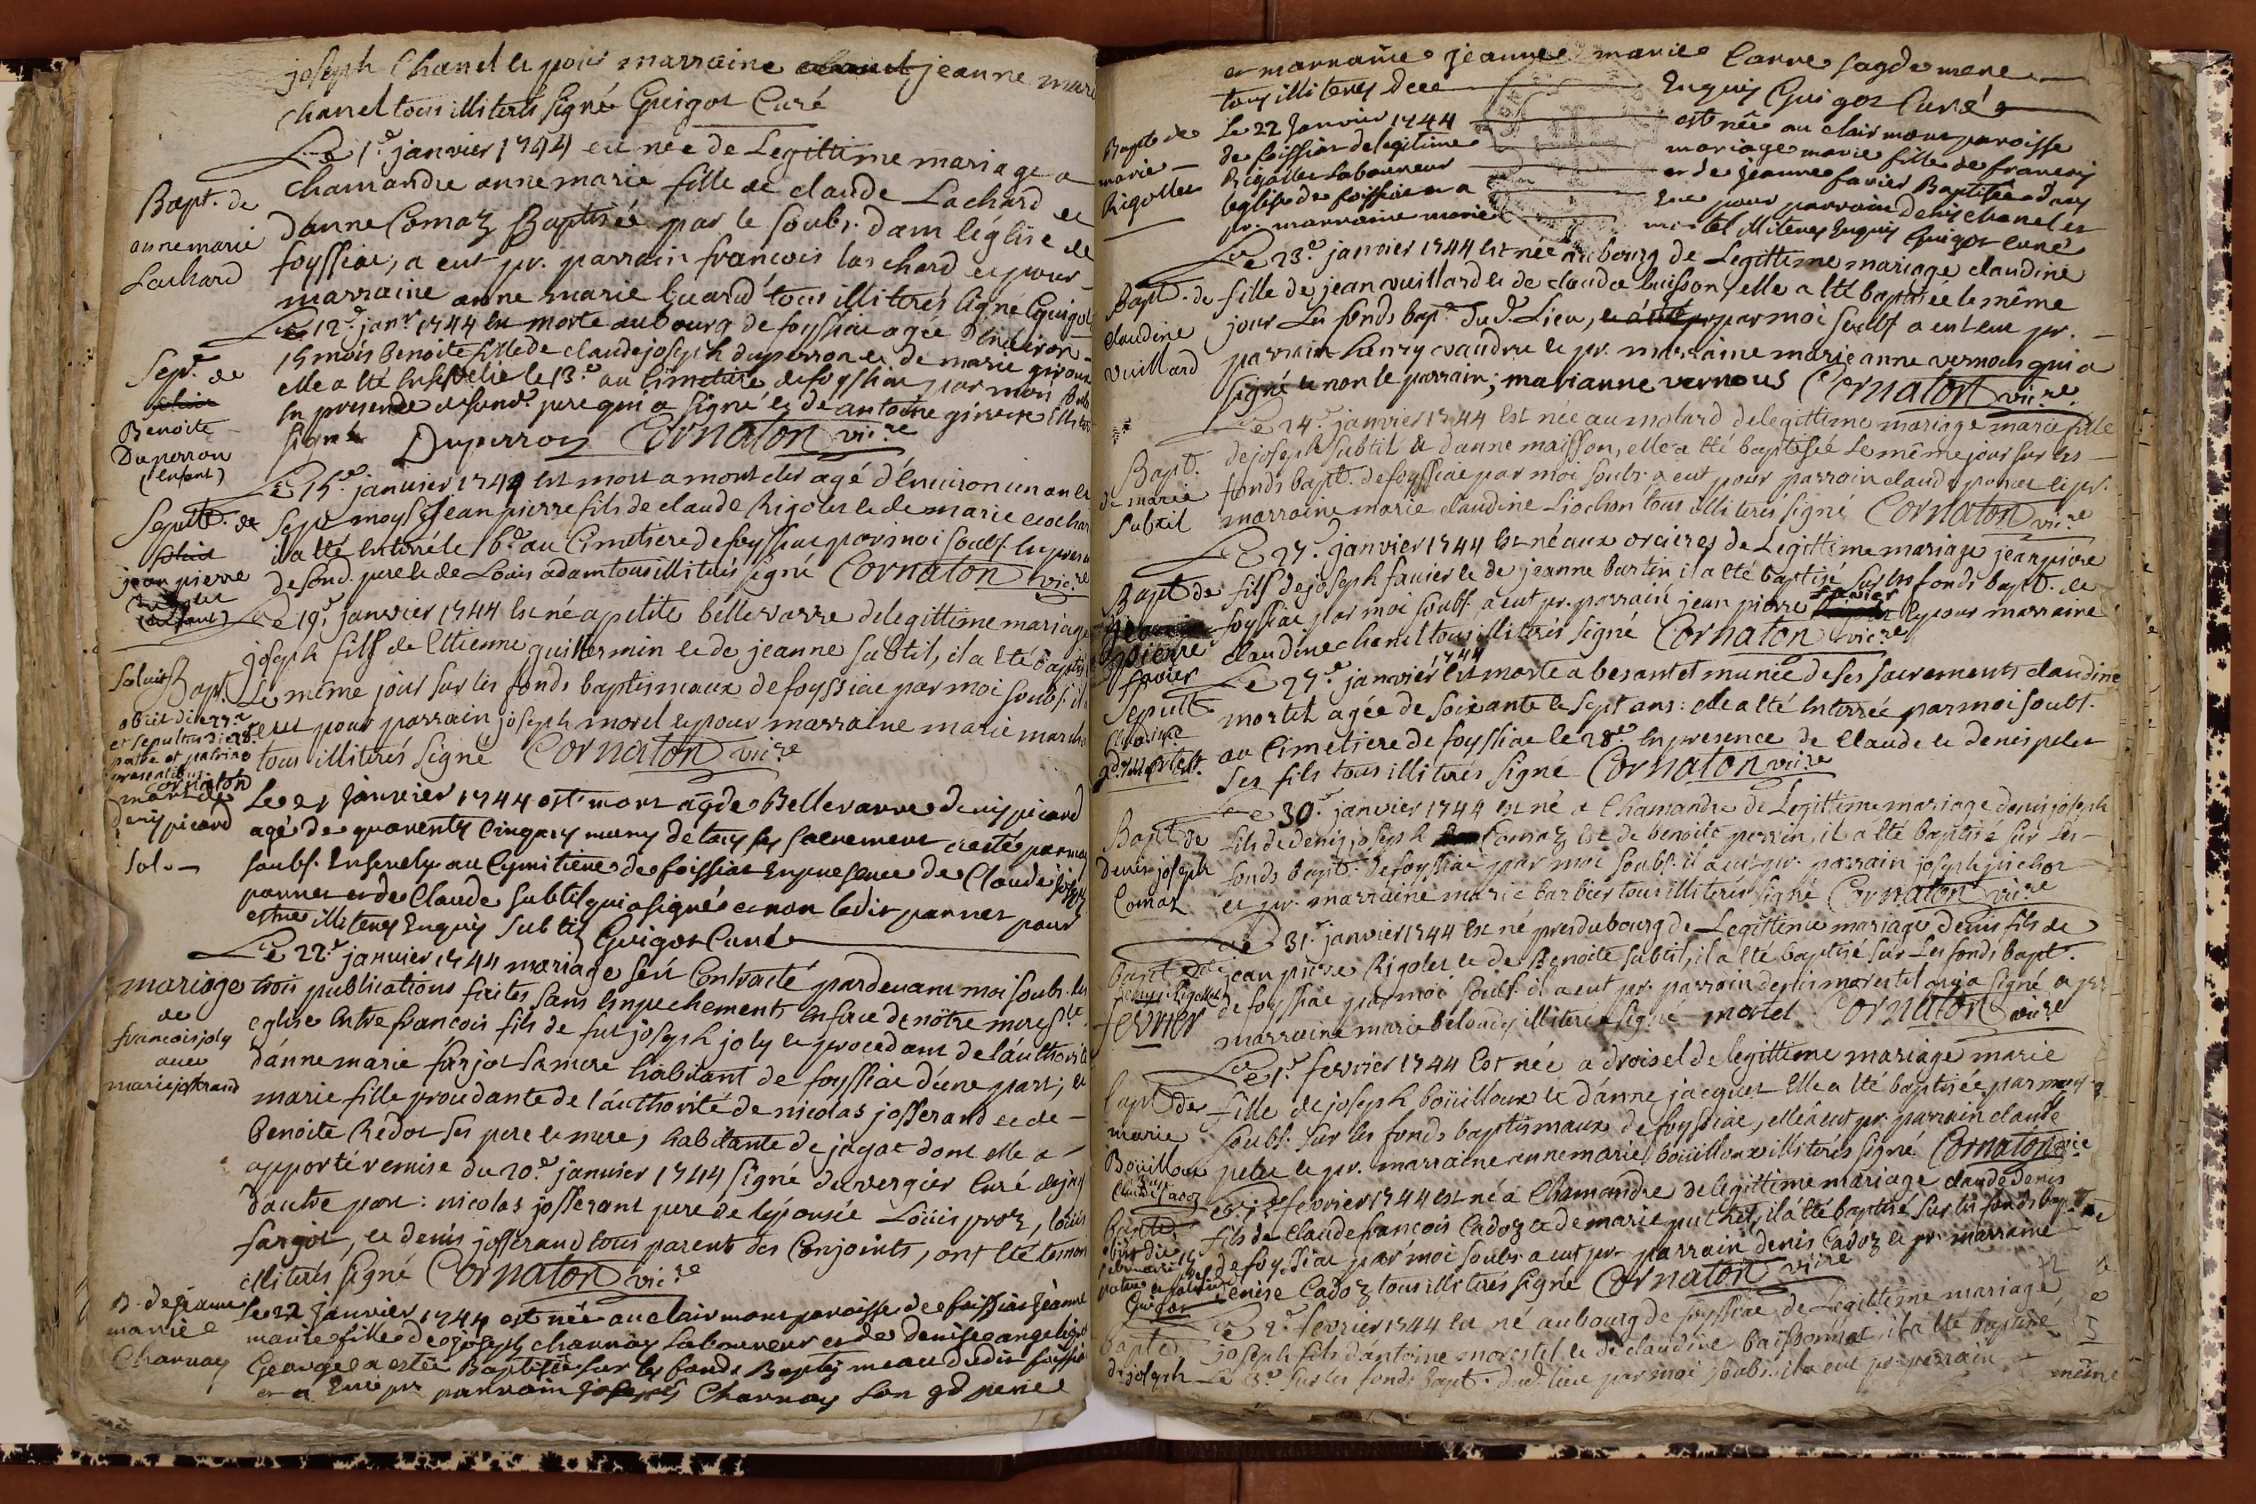 joseph Chanel le pour marraine jeanne marie
chanel tous illiterés signé Guigot Curé
Bapt. de
anne marie
Lachard
Le 1r janvier 1744 est née de Legittime mariage a
chamandre anne marie fille de claude Lachard et
d'anne Comaz Baptisée par le soubs. dans l'église de
foyssiac, a eut pr. parrain francois laschard et pour
marraine anne marie Guard tous illiterés signé Guigot
Sept. de
Benoite
Duperron
(enfant)
Le 12e janvr 1744 est morte au bourg de foyssiac agée d'environ
15 mois Benoite fille de claude joseph duperron et de marie giroux
elle a été ensevelie le 13e au Cimetiere de foyssiac par moi soubs
en presence de sond. pere qui a signé et de antoine
signé Duperron Cornaton vicre
Sepult. de
jean pierre
(enfant)
Le 15e janvier 1744 est mort a agé d'environ un an et
sept moys jean pierre fils de claude Rigolet et de marie
il a été enterré le 16e au Cimetiere de foyssiac par moi soubs. en presence
de sond. pere et de Louis adam tous illiterés signé Cornaton vicre
Bapt.
obiit die
et sepultus die 28e
patre et patrino
presentibus
Cornaton
Le 19e janvier 1744 est né a petite bellevavre de legittime mariage
joseph fils de Ettienne guillermin et de jeanne subtil, il a été baptisé
Le même jour sur les fonds baptismaux de foyssiac par moi soubs. il a
eut pour parrain joseph morel et pour marraine marie
tous illiterés signé Cornaton vicre
mort de
denis picard
sol.
Le 21 Janvier 1744 est mort de Bellevavre denis picard
agé de quarente cinq ans muny de tous ses sacrements par moy
soubs. Ensevely au Cymitiere de foissiat En presence de Claude joseph
pannet et de Claude subtil qui a signé et non ledit pannet pour
estre illiteres Enquis subtil Guigot Curé
mariage
de
francois joly
avec
marie josserand
Le 22e janvier 1744 mariage fut Contracté pardevant moi soubs. les
trois publications faites sans empechement en face de nôtre mere ste
eglise entre francois fils de fut joseph joly et procedant de l'authorité
d'anne marie farjot sa mere habitant de foyssiac d'une part; et
marie fille proudante de l'authorité de nicolas josserand et de
benoite Redot ses pere et mere, habitante de jayat dont elle a
apporté remise du 20e janvier 1744 signé duvergier Curé de jayat
d'autre part: nicolas josserant pere de l'épousée Loüis proz, loüis
farjot, et denis josserand tous parents des Conjoints, ont été temoins
illiterés signé Cornaton vicre
B. de jeanne
marie
Charnay
Le 22 janvier 1744 est née au clairmont paroisse de foissiat jeanne
marie fille de joseph charnay Laboureur et de denise angelique
George a estée Baptisée sur les fonds Baptismeaux dudit foissiat
et a Eue pr parrain joseph Charnay son gd pere
et marraine jeanne marie Carre sagde mere
tous illiteres de ce Enquis Guigot Curé
Bapt de
marie
Rigollet
Le 22 Janvier 1744 est née au clairmont paroisse
de foissiat de legitime mariage marie fille de francois
Rigollet laboureur et de jeanne favier Baptisée dans
leglise de foissiat a Eue pour parrain denis chanel et
pr. marraine marie mortel illiteres Enquis Guigot curé
Bapt. de
claudine
vuillard
Le 23e janvier 1744 est née au bourg de Legittime mariage claudine
fille de jean vuillard et de claudce buisson, elle a été baptisée le même
jour Les fonds bapt. du d. Lieu, par moi soubs a eut pr.
parrain henry vaudru et pr. marraine marie anne vernous qui a
signé et non le parrain; marianne vernous Cornaton vicre
Bapt.
de marie
Subtil
Le 24e janvier 1744 est née au molard de legittime mariage marie fille
de joseph subtil et d'anne maisson, elle a été baptisée Le même jour sur les
fonds bapt. de foyssiac par moi soubs. a eut pour parrain claude panet et pr.
marraine marie claudine Liochon tous illiterés signé Cornaton vicre
Bapt de
pierre
favier
Le 27e janvier 1744 est né aux orcieres de Legittime mariage jean pierre
fils de joseph favier et de jeanne bartin il a été baptisé sur les fonds bapt. de
foyssiac par moi soubs. a eut pr. parrain jean pierre favier et pour marraine
claudine chanel tous illiterés signé Cornaton vicre
Sepult
claudine
mortel
Le 27e janvier 1744 est morte a besantet munie de ses sacrements claudine
mortel agée de soixante et sept ans: elle a été enterrée par moi soubs.
au Cimetiere de foyssiac le 28e en presence de Claude et denis pelet
ses fils tous illiterés signé Cornaton vicre
Bapt de
denis joseph
Comaz
Le 30e janvier 1744 est né a Chamandre de Legittime mariage denis joseph
fils de denis joseph Comaz et de benoite perrin, il a été baptisé sur Les
fonds bapt. de foyssiac par moi soubs. il a eut pr. parrain joseph pichot
et pr. marraine marie barbier tous illiterés signé Cornaton vicre
Bapt de
denis Rigollet
Le 31e janvier 1744 est né pres du bourg de Legittime mariage denis fils de
jean pierre Rigolet et de Benoite subtil, il a été baptisé sur Les fonds bapt.
de foyssiac par moi soubs. il a eut pr. parrain denis morestel qui a signé et pr
marraine marie beloudy illiterée signé mortel Cornaton vicre
fevrier
bapt de
marie
Boüilloux
Le 1r fevrier 1744 est née a droisel de legittime mariage marie
fille de joseph boüilloux et d'anne jacquet elle a été baptisée par moy
soubs. sur les fonds baptismaux de foyssiac, elle a eut pr. parrain claude
pelet et pr. marraine anne marie boüilloux illiterés signé Cornaton vicre
claude Cadoz
obiit die
februarii
Guigot
Le 1r fevrier 1744 est né a Chamandre de legittime mariage claude denis
fils de Claude francois Cadoz et de marie puthet, il a été baptisé sur les fonds bapt
de foyssiac par moi soubs. a eut pr. parrain denis Cadoz et pr. marraine
denise Cadoz tous illiterés signé Cornaton vicre
bapt de
de joseph
Le 2e fevrier 1744 est né au bourg de foyssiac de Legittime mariage
joseph fils d'antoine morestel et de claudine baissonnat il a été baptisé
Le 3e sur les fonds bapt. dud. lieu par moi soubs. il a eut pr. parrain
même